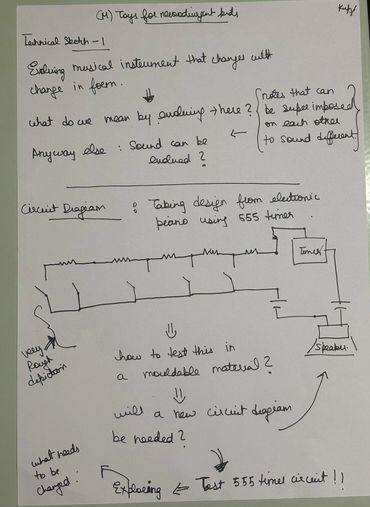 (M) Toys for neurodivergent kids
Technical Sketch - 1
Evolving musical instrument that changes with
change in form.
what do we mean by evolving → here?
notes that can
be super imposed
on each other
to sound different
Anyway else : Sound can be
evolved ?
Circuit Diagram : Taking design from electronic
piano using 555 timer.
Timer
Speaker
very
rough
depiction
how to test this in
a mouldable material?
will a new circuit diagram
be needed?
what needs
to be
changed :
Exploring ⇐ Test 555 timer circuit !!